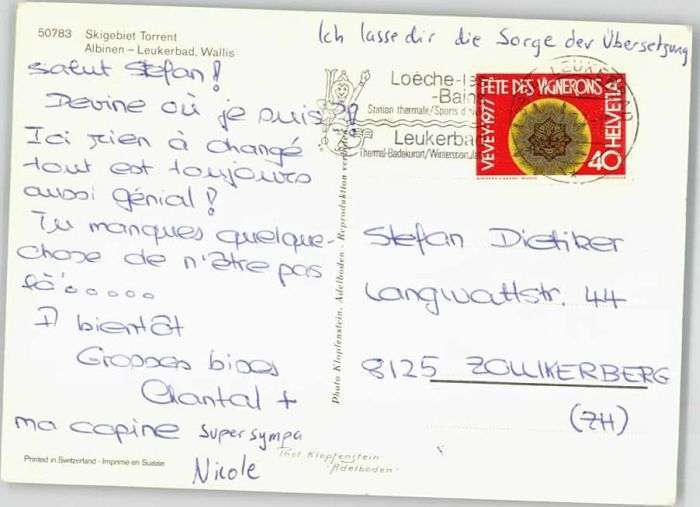 50783 Skigebiet Torrent
Albinen – Leukerbad, Wallis
Ich lasse dir die Sorge der Übersetzung
Salut Stefan!
Devine où je suis?!
Ici rien à changé
tout est toujours
aussi génial!
Tu manques quelque-
chose de n'être pas
là.....
A bientôt
Grosses bises
Chantal +
ma copine super sympa
Nicole
Printed in Switzerland - Imprimé en Suisse
Photo Klopfenstein, Adelboden - Reproduktion verboten
Loèche-les
-Bains
Station thermale/Sports d'
Leukerbad
Thermal-Badekurort/Wintersport
FÊTE DES VIGNERONS
VEVEY 1977
HELVETIA
40
Stefan Dietiker
Langwattstr. 44
8125 ZOLLIKERBERG
(ZH)
Phot Klopfenstein
"Adelboden"